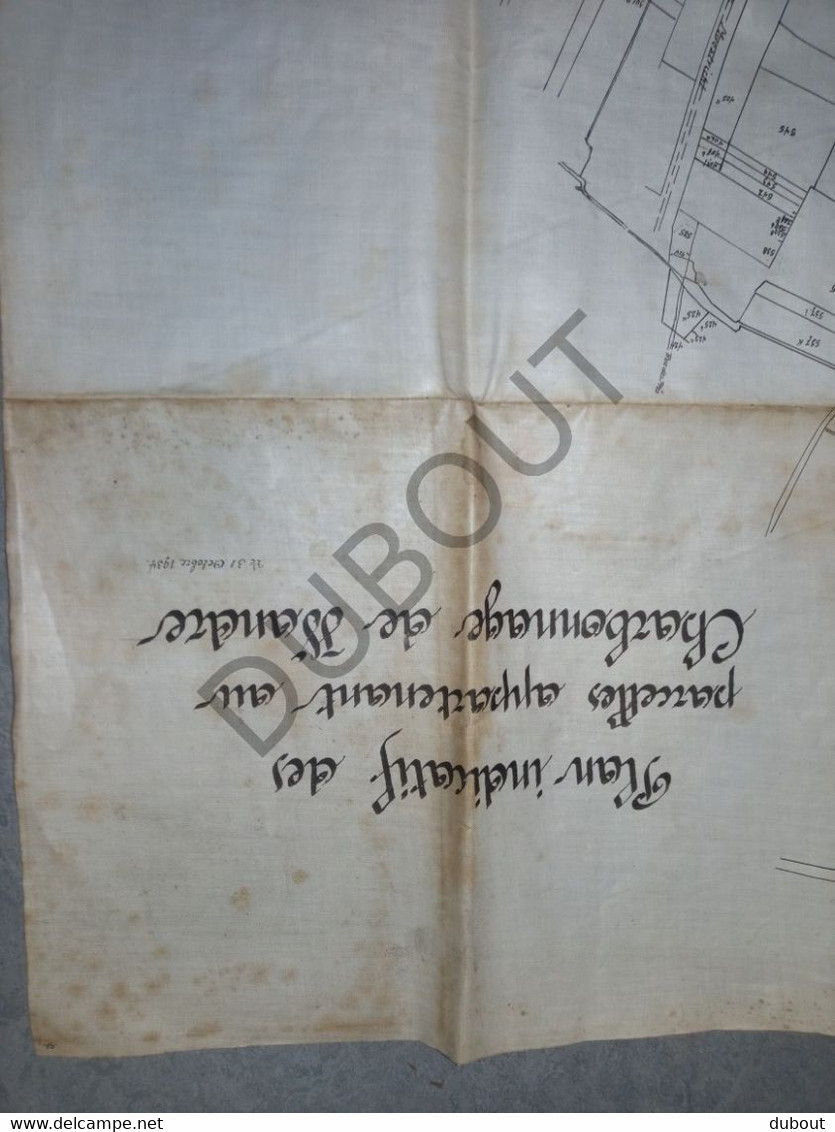 Plan indicatif des
parcelles appartenant au
Charbonnage de Wandre
le 31 Octobre 1934.
DUBOUT
545
544
543
542
538
585
424
537 K
www.delcampe.net
dubout